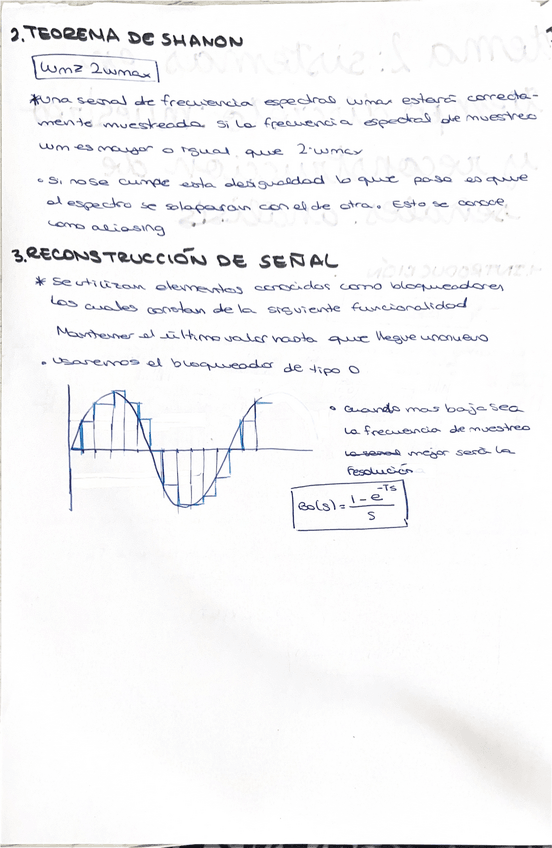 2. TEOREMA DE SHANON
Wm≥ 2wmax
*Una señal de frecuencia espectral wmax estará correcta-
mente muestreada si la frecuencia espectral de muestreo
wm es mayor o igual que 2·wmax
• Si no se cumple esta desigualdad lo que pasa es que
el espectro se solaparan con el de otra. Esto se conoce
como aliasing
3. RECONSTRUCCIÓN DE SEÑAL
* Se utilizan elementos conocidos como bloqueadores
los cuales constan de la siguiente funcionalidad
Mantener el último valor hasta que llegue uno nuevo
• Usaremos el bloqueador de tipo 0
• Cuando mas baja sea
la frecuencia de muestreo
la señal mejor será la
resolución
Bo(s) = 1 - e^-Ts / s